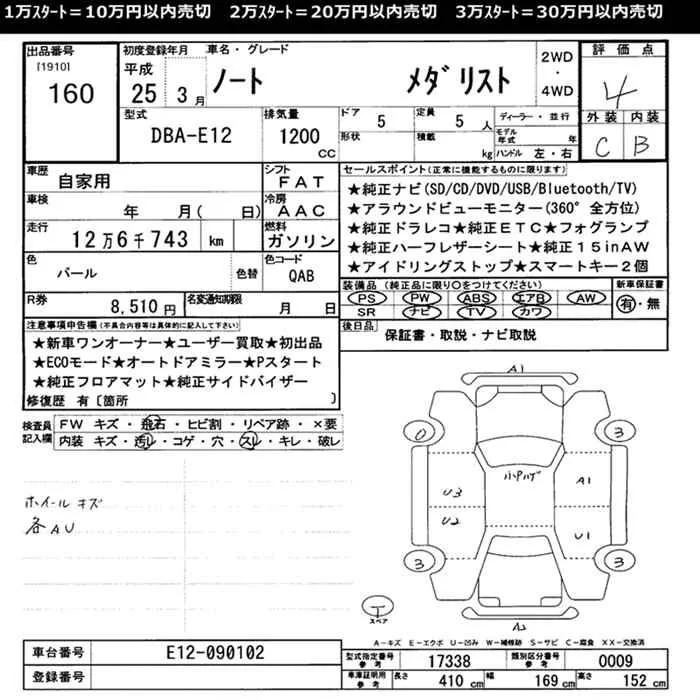 1万ｽﾀｰﾄ＝10万円以内売切　2万ｽﾀｰﾄ＝20万円以内売切　3万ｽﾀｰﾄ＝30万円以内売切
出品番号 初度登録年月 車名・グレード 2WD・4WD 評価点
[1910] 平成 ノート メダリスト 4
160 25 3月
型式 排気量 ドア 5 定員 5人 ディーラー・並行 外装 内装
DBA-E12 1200cc 形状 積載 kg モデル年式 年 C B
ハンドル 左・右
車歴 自家用 シフト FAT
車検 年 月(日) 冷房 AAC
走行 12万6千743 km 燃料 ガソリン
色 パール 色替 色コード QAB
R券 8,510円 名変通知期限 月 日
セールスポイント(正常に機能するものに限ります)
★純正ナビ(SD/CD/DVD/USB/Bluetooth/TV)
★アラウンドビューモニター(360°全方位)
★純正ドラレコ★純正ETC★フォグランプ
★純正ハーフレザーシート★純正15inAW
★アイドリングストップ★スマートキー2個
装備品(純正品に限り○をつけてください) 新車保証書
PS PW ABS エアB AW 有・無
SR ナビ TV カワ
後日品 保証書・取説・ナビ取説
注意事項申告欄(不具合内容等は具体的に記入して下さい)
★新車ワンオーナー★ユーザー買取★初出品
★ECOモード★オートドアミラー★Pスタート
★純正フロアマット★純正サイドバイザー
修復歴 有〔箇所 〕
検査員記入欄 FW キズ・飛石・ヒビ割・リペア跡・×要
内装 キズ・汚レ・コゲ・穴・スレ・キレ・破レ
ホイールキズ
各AU
A1
0 3
小Pハゲ
U3 A1
U2 U1
3 3
T
スペア
A2
A－キズ E－エクボ U－凹み W－補修跡 S－サビ C－腐食 XX－交換済
車台番号 E12-090102
登録番号
型式指定番号 参考 17338 類別区分番号 参考 0009
車庫証明用 参考 長さ 410cm 幅 169cm 高さ 152cm